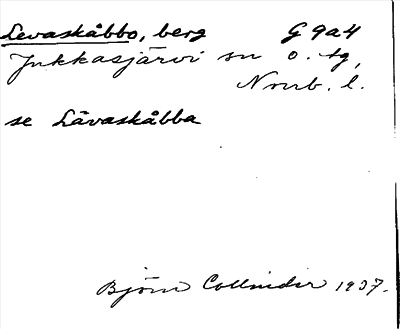 Levaskåbbo, berg G 9a4
Jukkasjärvi sn o. tg,
Norrb. l.
se Lävaskåbba
Björn Collinder 1937.